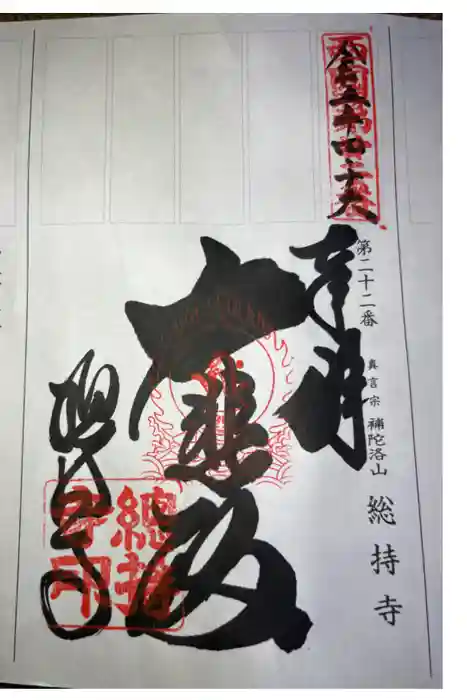 西国第廿二番
奉拝
第二十二番
真言宗 補陀洛山 総持寺
大悲殿
総持寺
總持寺印